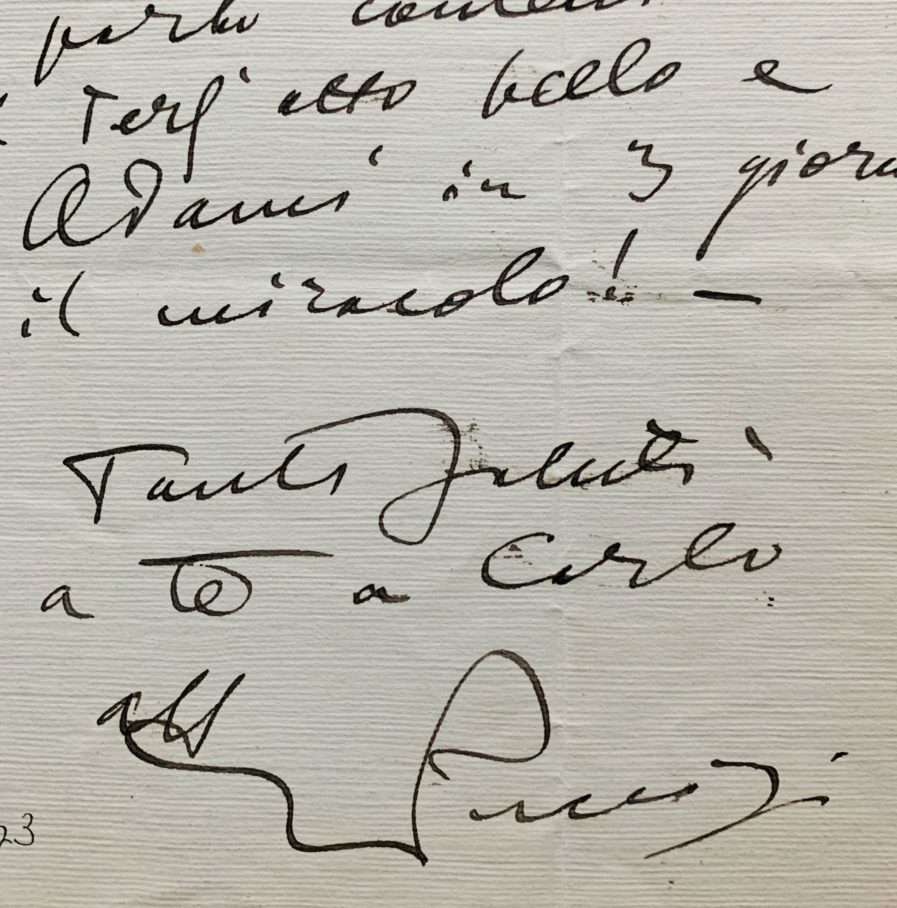 parto contento
il Terz' atto bello e
Adami in 3 giorni
il miracolo! –
Tanti saluti
a te a Carlo
aff Puccini
23